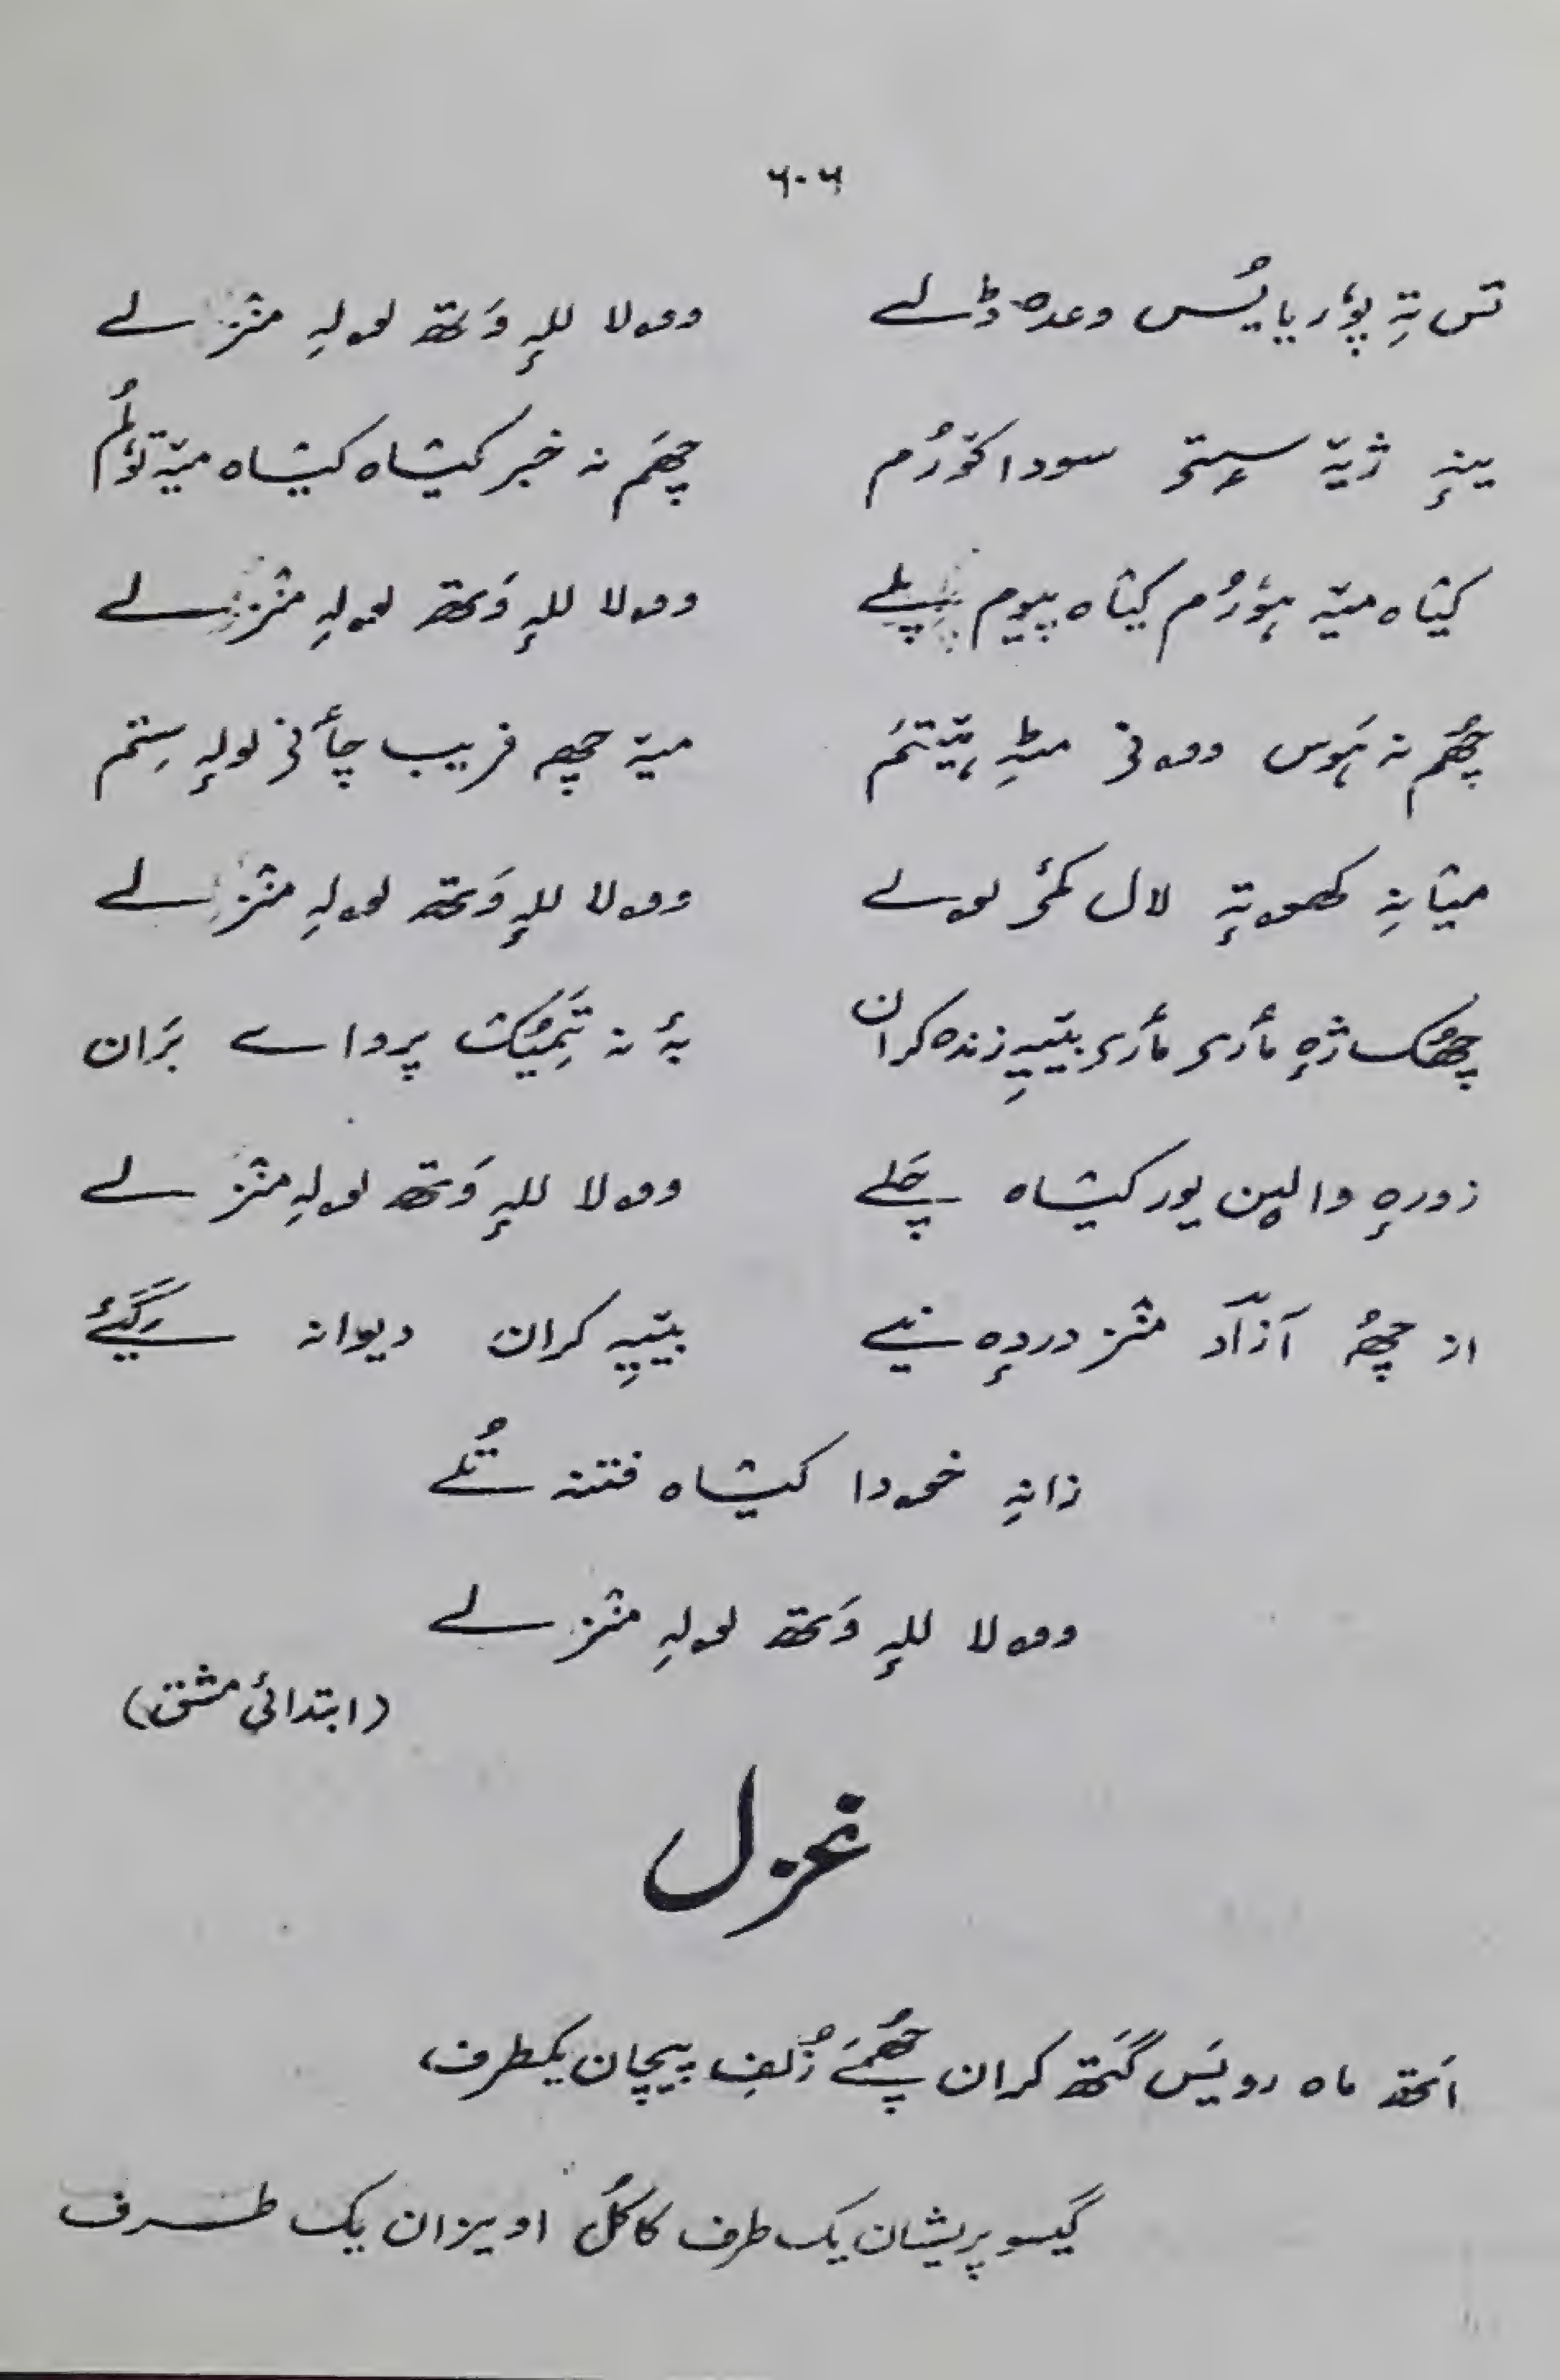 ٦٠٦
تس تہِ پوٗر یا یُس وعدہ ڈلے وولا للہِ وَتھ لولہِ منٛز لے
ینہِ ژیہٚ سٟتۍ سودا کوٚرُم چھَم نہ خبر کیٛاہ کیٛاہ میہٚ توٗلُم
کیٛاہ میہٚ ہوٗرُم کیٛاہ پیوم پلے وولا للہِ وَتھ لولہِ منٛز لے
چھُم نہ ہَوس وونۍ مٹہِ ہیٚتمَ میہٚ چھِ فریب چأنۍ لولہِ ستم
میٛانہِ کھوتہِ لال کمۍ لولے وولا للہِ وَتھ لولہِ منٛز لے
چھُک ژہِ مأرۍ مأرۍ بییہِ زندہ کران بہٕ نہ تَمیُک پرواے بَران
زورہِ والین یور کیٛاہ چَلے وولا للہِ وَتھ لولہِ منٛز لے
از چھُ آزاد منٛز دردہِ نیے بییہِ کران دیوانہ رَگیے
زانہِ خودا کیٛاہ فتنہ تُلے
وولا للہِ وَتھ لولہِ منٛز لے
(ابتدائی مشق)
غزل
اَتھ ماہ رویَس گَتھ کران چھُمَے زُلفِ پیچان یکطرف،
گیسو پریشان یک طرف کاکُل اویزان یک طرف